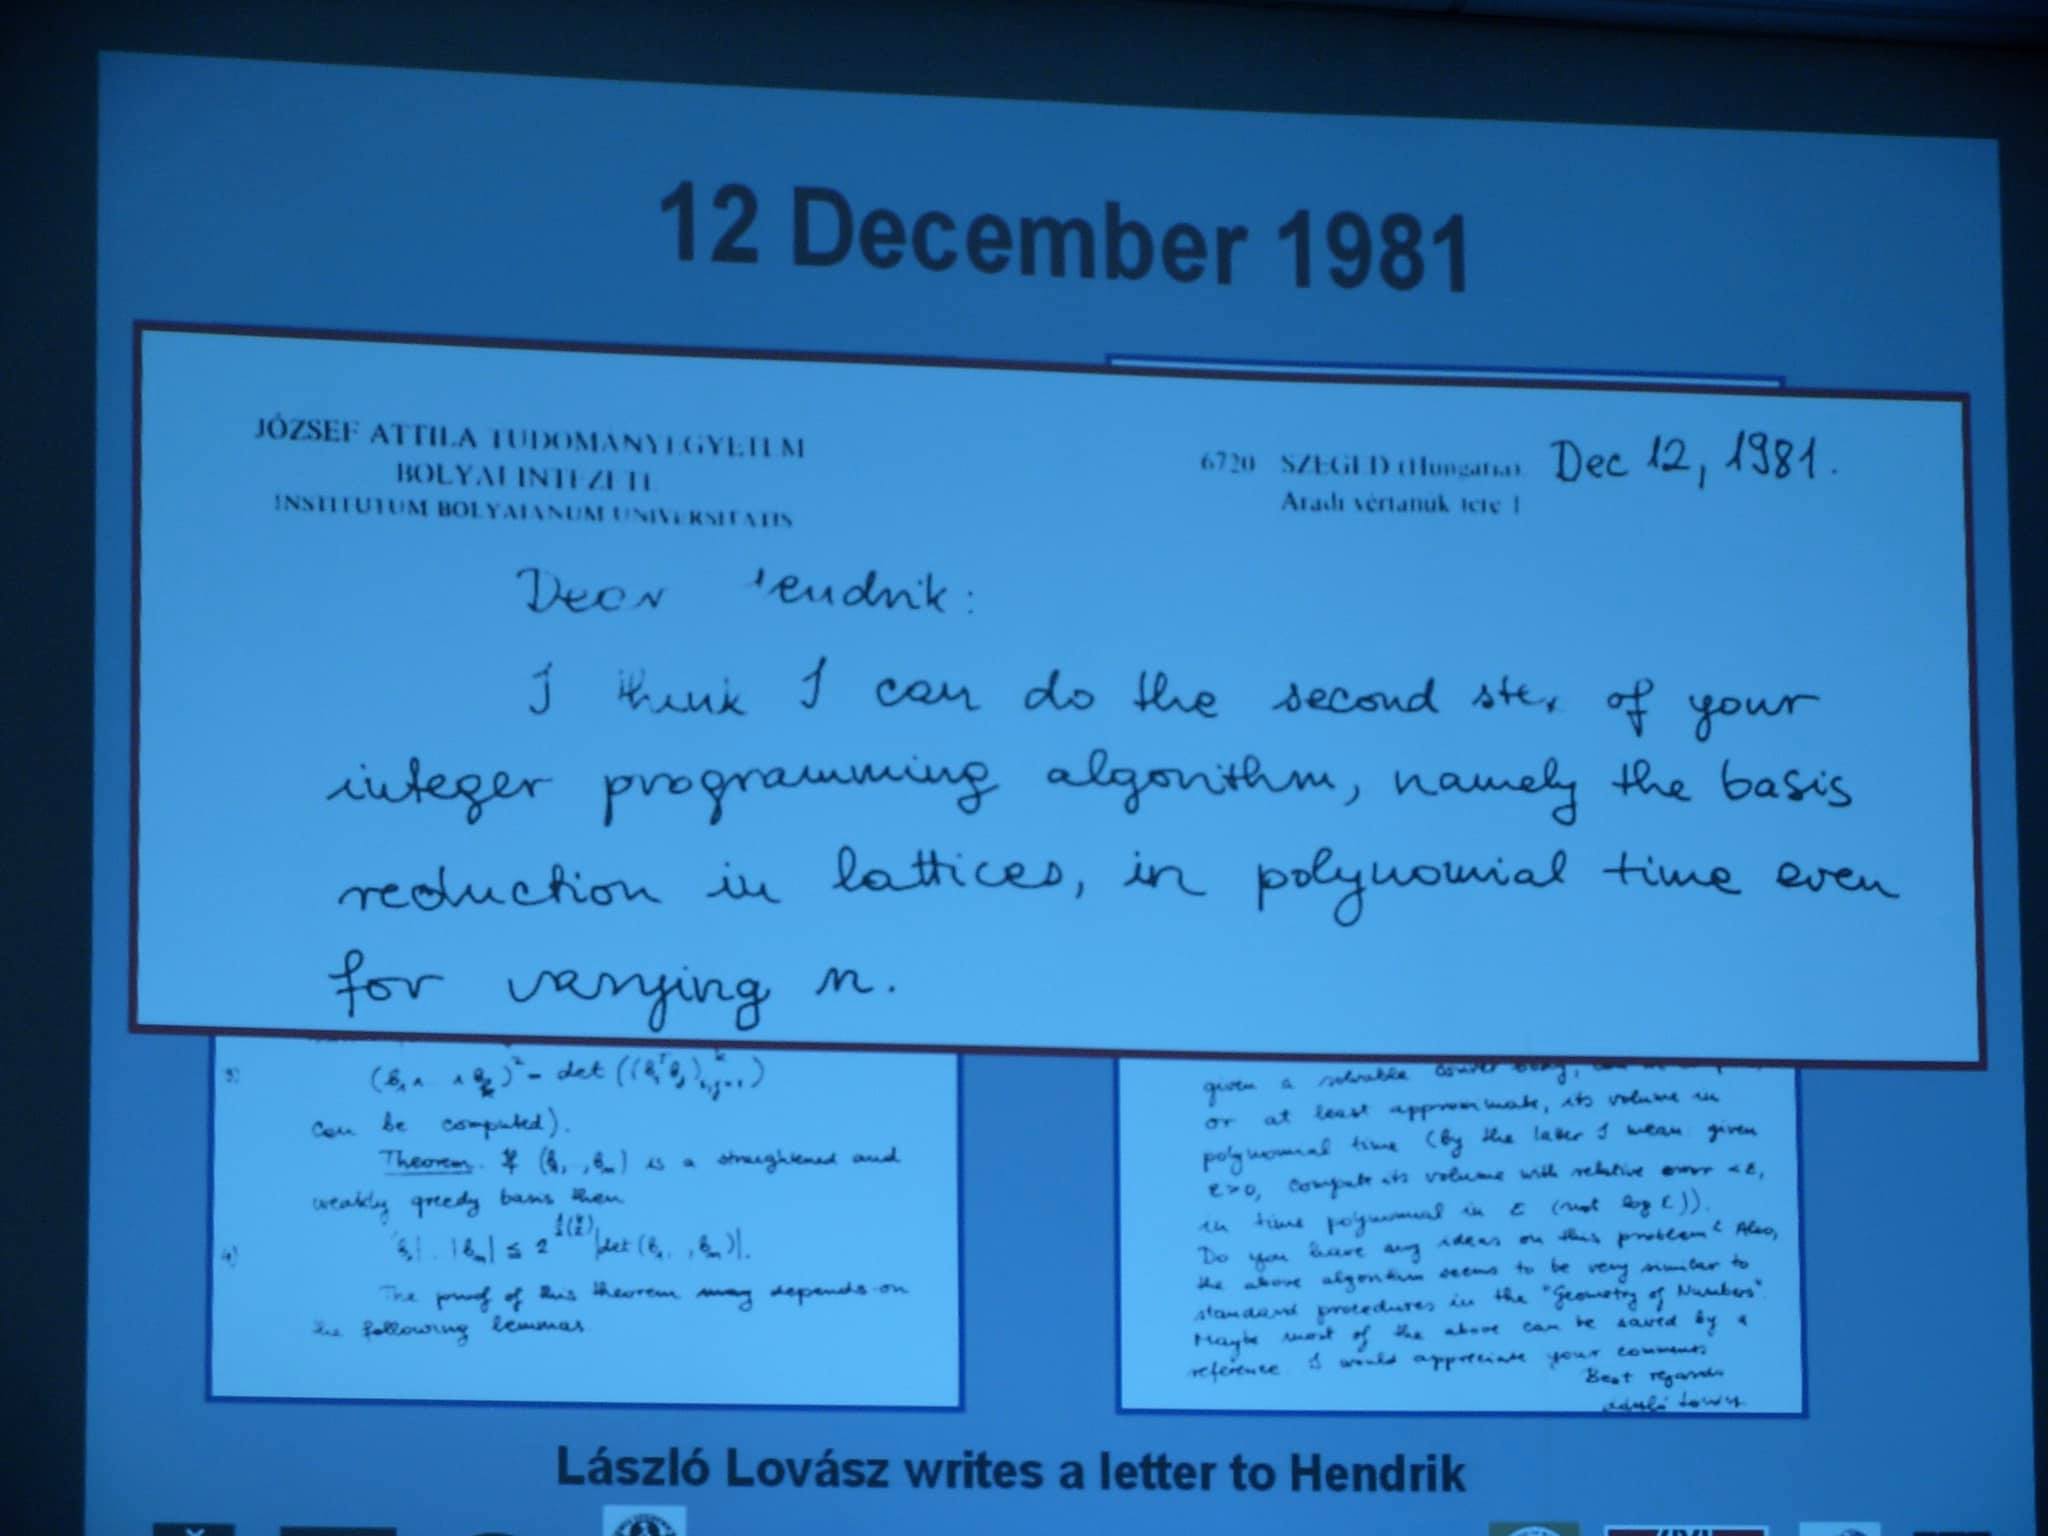 12 December 1981
JÓZSEF ATTILA TUDOMÁNYEGYETEM
BOLYAI INTÉZETE
INSTITUTUM BOLYAIANUM UNIVERSITATIS
6720 SZEGED (Hungaria), Dec 12, 1981.
Aradi vértanúk tere 1
Dear Hendrik:
I think I can do the second step of your
integer programming algorithm, namely the basis
reduction in lattices, in polynomial time even
for varying n.
3)
can be computed).
Theorem. If is a straightened and
weakly greedy basis then
4)
The proof of this theorem depends on
the following lemmas
given a solvable convex body,
or at least approximate, its volume in
polynomial time (by the later I mean: given
ε>0, compute its volume with relative error <ε,
in time polynomial in ε (not log ε)).
Do you have any ideas on this problem? Also,
the above algorithm seems to be very similar to
standard procedures in the "Geometry of Numbers".
Maybe most of the above can be saved by a
reference. I would appreciate your comments
Best regards
László Lovász writes a letter to Hendrik